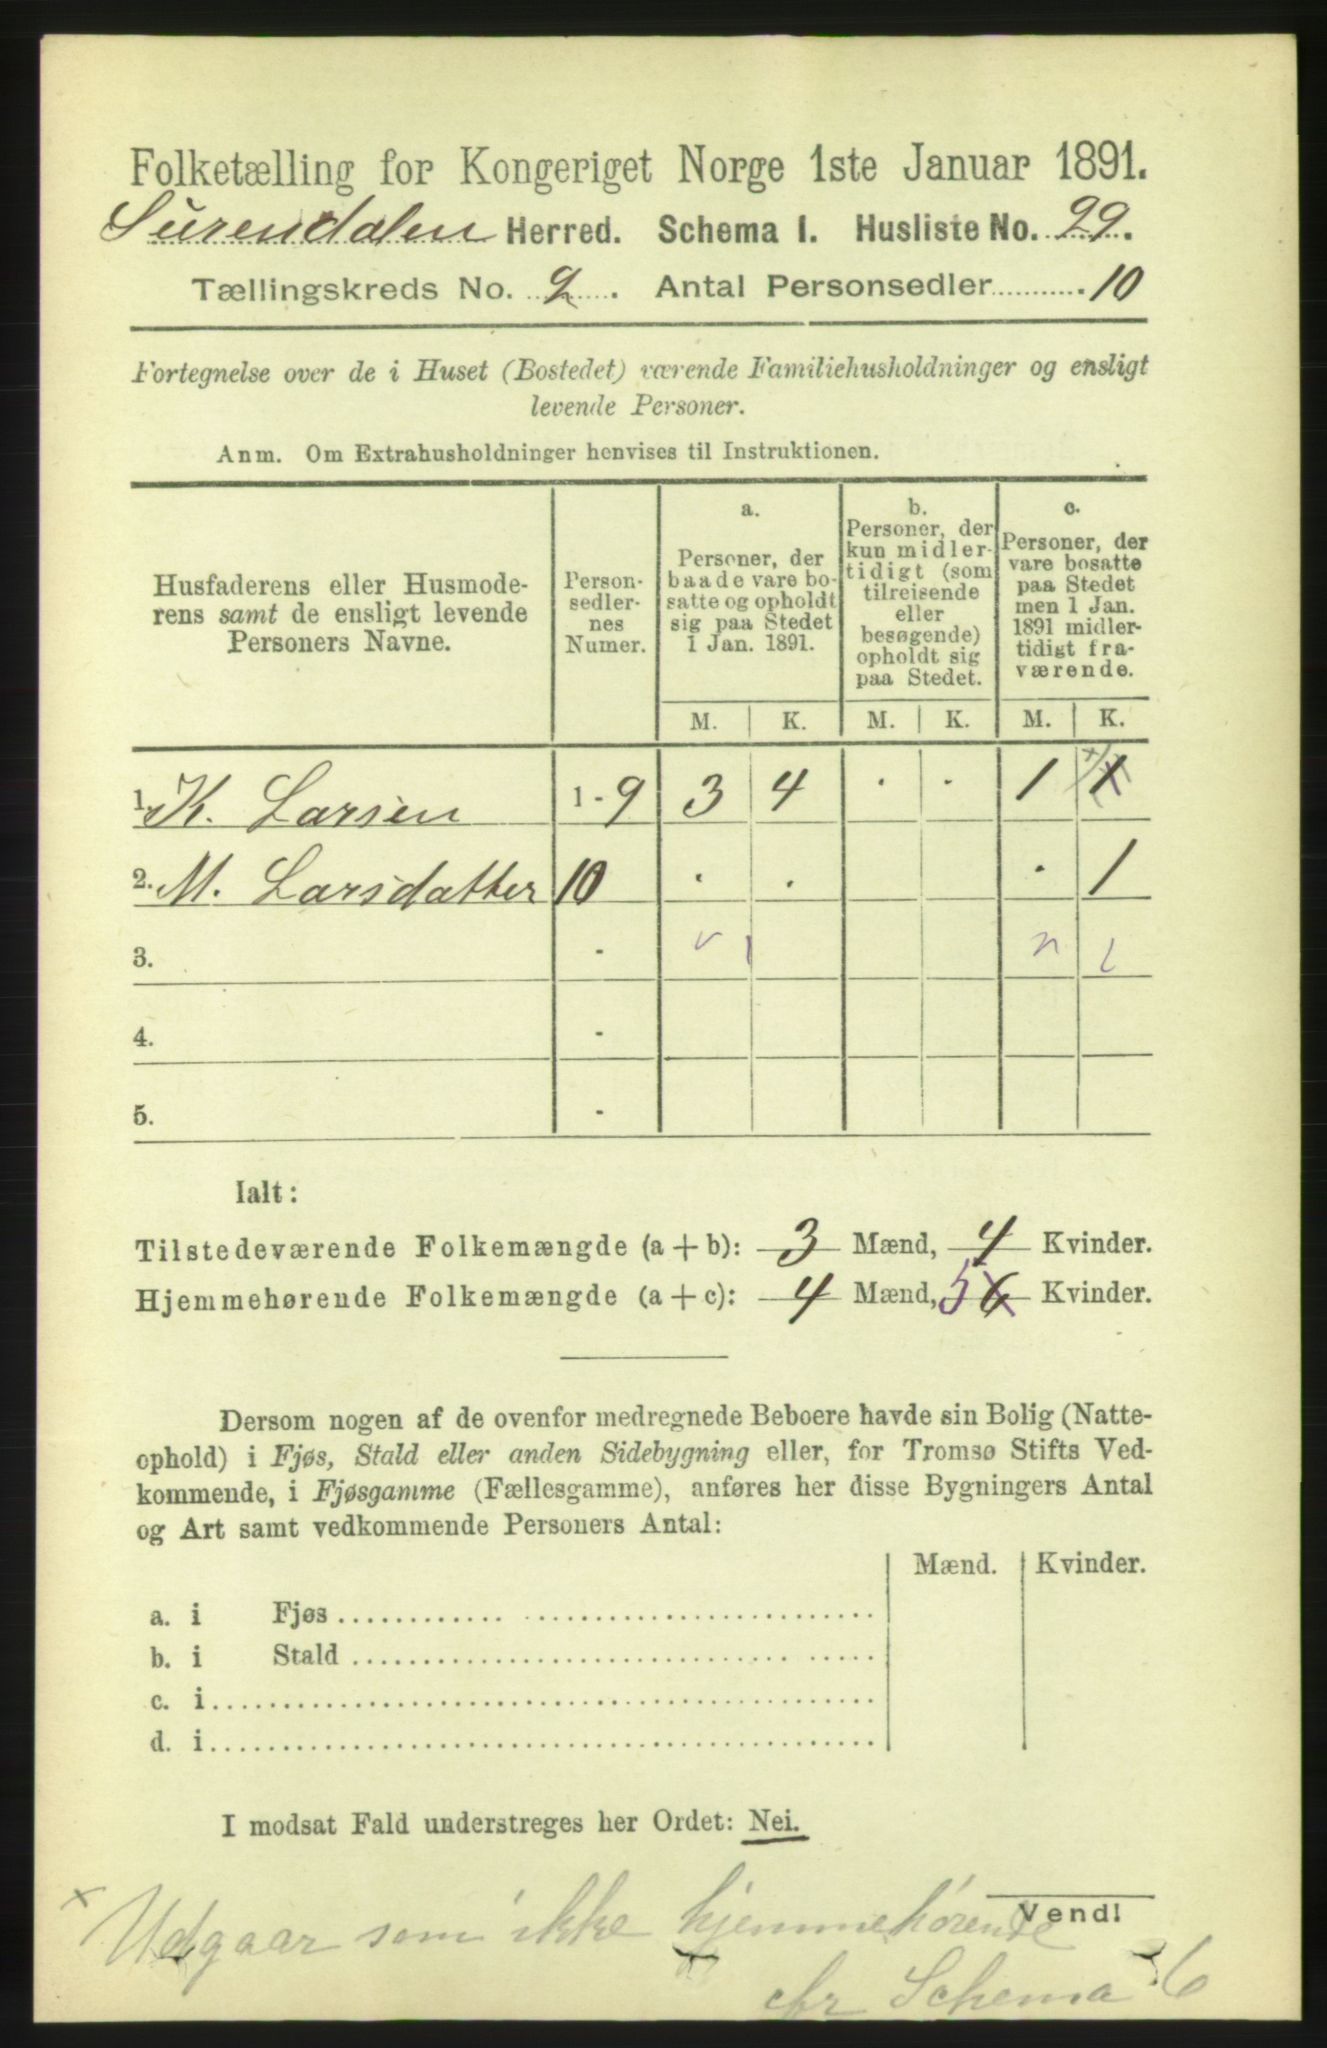 Folketælling for Kongeriget Norge 1ste Januar 1891.
Surendalen Herred. Schema I. Husliste No. 29.
Tællingskreds No. 2. Antal Personsedler 10
Fortegnelse over de i Huset (Bostedet) værende Familiehusholdninger og ensligt
levende Personer.
Anm. Om Extrahusholdninger henvises til Instruktionen.
Husfaderens eller Husmode-
rens samt de ensligt levende
Personers Navne.
Person-
sedler-
nes
Numer.
a.
Personer, der
baade vare bo-
satte og opholdt
sig paa Stedet
1 Jan. 1891.
b.
Personer, der
kun midler-
tidigt (som
tilreisende
eller
besøgende)
opholdt sig
paa Stedet.
c.
Personer, der
vare bosatte
paa Stedet
men 1 Jan.
1891 midler-
tidigt fra-
værende.
M. K. M. K. M. K.
1. K. Larsen 1-9 3 4 . . 1 x 1
2. M. Larsdatter 10 . . . 1
3. -
4. -
5. -
Ialt:
Tilstedeværende Folkemængde (a + b): 3 Mænd, 4 Kvinder.
Hjemmehørende Folkemængde (a + c): 4 Mænd, 5 6 Kvinder.
Dersom nogen af de ovenfor medregnede Beboere havde sin Bolig (Natte-
ophold) i Fjøs, Stald eller anden Sidebygning eller, for Tromsø Stifts Ved-
kommende, i Fjøsgamme (Fællesgamme), anføres her disse Bygningers Antal
og Art samt vedkommende Personers Antal:
Mænd. Kvinder.
a. i Fjøs
b. i Stald
c. i
d. i
I modsat Fald understreges her Ordet: Nei.
Vend!
x Udgaar som ikke hjemmehørende
cfr Schema 6